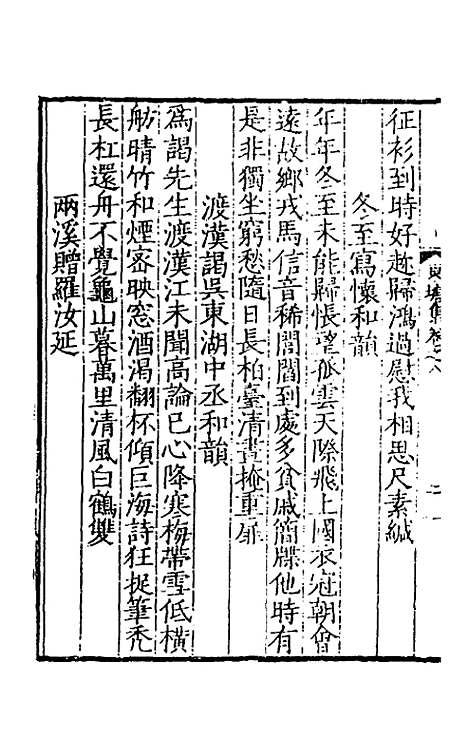 征衫到時好趂歸鴻過慰我相思尺素緘
冬至寫懷和韻
年年冬至未能歸悵望孤雲天際飛上國衣冠朝會
遠故鄉戎馬信音稀閭閻到處多貧戚簡牒他時有
是非獨坐窮愁隨日長柏臺清晝掩重扉
渡漢謁吳東湖中丞和韻
爲謁先生渡漢江未聞高論已心降寒梅帶雪低橫
舫晴竹和煙密映窓酒渴翻杯傾巨海詩狂捉筆禿
長杠還舟不覺龜山暮萬里清風白鶴雙
兩溪贈羅汝延